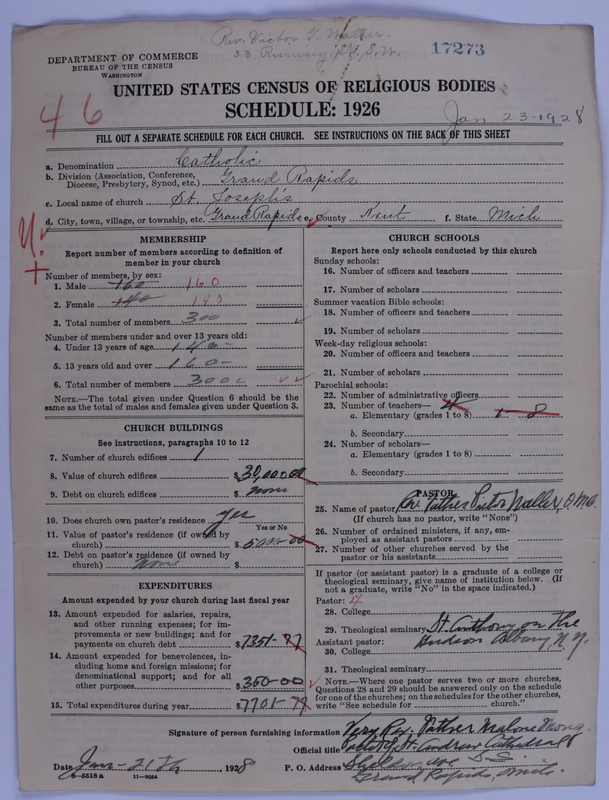 Rev. Victor G. Waller.
33 Rumsey St. S.W.
17273
DEPARTMENT OF COMMERCE
BUREAU OF THE CENSUS
WASHINGTON
UNITED STATES CENSUS OF RELIGIOUS BODIES
SCHEDULE: 1926
46
Jan 23-1928
FILL OUT A SEPARATE SCHEDULE FOR EACH CHURCH. SEE INSTRUCTIONS ON THE BACK OF THIS SHEET
a. Denomination Catholic
b. Division (Association, Conference, Diocese, Presbytery, Synod, etc.) Grand Rapids
c. Local name of church St. Joseph's
d. City, town, village, or township, etc. Grand Rapids e. County Kent f. State Mich
MEMBERSHIP
Report number of members according to definition of
member in your church
Number of members, by sex:
1. Male 160 160
2. Female 140 140
3. Total number of members 300
Number of members under and over 13 years old:
4. Under 13 years of age 140
5. 13 years old and over 160
6. Total number of members 300
NOTE.—The total given under Question 6 should be the
same as the total of males and females given under Question 3.
CHURCH BUILDINGS
See instructions, paragraphs 10 to 12
7. Number of church edifices 1
8. Value of church edifices $30,000.00
9. Debt on church edifices $ none
10. Does church own pastor's residence yes
Yes or No
11. Value of pastor's residence (if owned by
church) $5000-00
12. Debt on pastor's residence (if owned by
church) Non $
EXPENDITURES
Amount expended by your church during last fiscal year
13. Amount expended for salaries, repairs,
and other running expenses; for im-
provements or new buildings; and for
payments on church debt $7351-77
14. Amount expended for benevolences, in-
cluding home and foreign missions; for
denominational support; and for all
other purposes $350-00
15. Total expenditures during year $7701-77
CHURCH SCHOOLS
Report here only schools conducted by this church
Sunday schools:
16. Number of officers and teachers
17. Number of scholars
Summer vacation Bible schools:
18. Number of officers and teachers
19. Number of scholars
Week-day religious schools:
20. Number of officers and teachers
21. Number of scholars
Parochial schools:
22. Number of administrative officers
23. Number of teachers— 4
a. Elementary (grades 1 to 8) 1-8
b. Secondary
24. Number of scholars—
a. Elementary (grades 1 to 8)
b. Secondary
PASTOR
25. Name of pastor Rev. Father Victor Waller, O.M.C.
(If church has no pastor, write "None")
26. Number of ordained ministers, if any, em-
ployed as assistant pastors
27. Number of other churches served by the
pastor or his assistants
If pastor (or assistant pastor) is a graduate of a college or
theological seminary, give name of institution below. (If
not a graduate, write "No" in the space indicated.)
Pastor:
28. College
29. Theological seminary St. Anthony on the
Assistant pastor: Hudson Albany N.Y.
30. College
31. Theological seminary
NOTE.—Where one pastor serves two or more churches,
Questions 28 and 29 should be answered only on the schedule
for one of the churches; on the schedules for the other churches,
write "See schedule for church."
Signature of person furnishing information Very Rev. Father Malone
Official title of St. Andrew Cathedral
Date Jan-21th, 1928 P. O. Address Sheldon Ave S-E
6-5518a 11-9084 Grand Rapids, Mich.